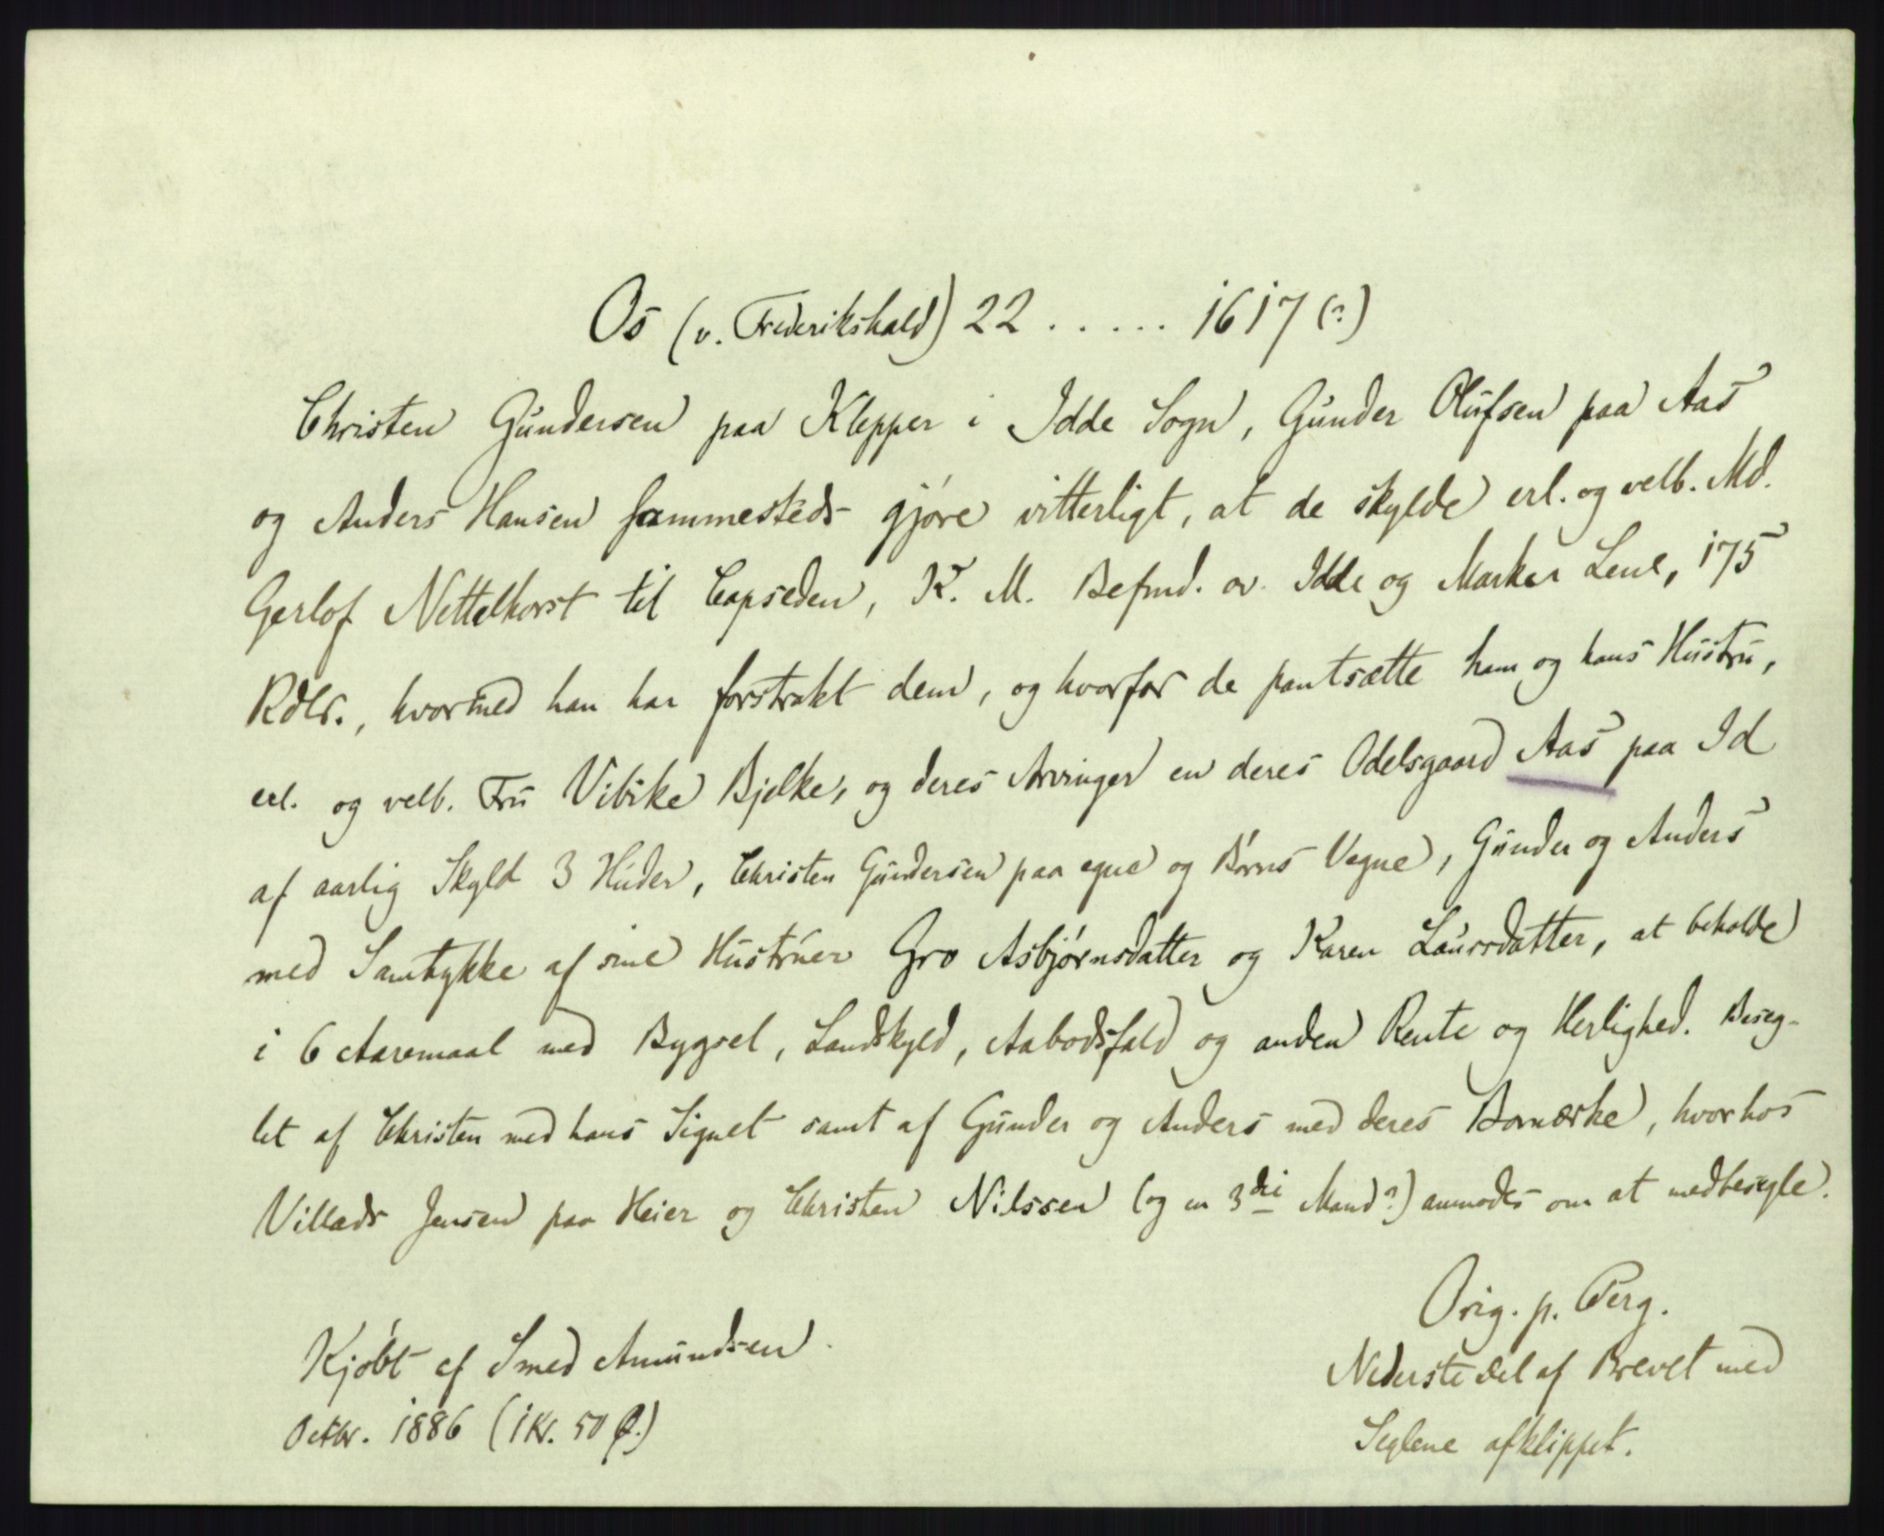 Os (v. Frederikshald) 22 . . . . . 1617 (?)
Christen Gundersen paa Klepper i Idde Sogn, Gunder Olufsen paa Aas
og Anders Hansen sammesteds gjøre vitterligt, at de skylde erl. og velb. Md.
Gerlof Nettelhorst til Capseden, K. M. Befmd. ov. Idde og Marker Lene, 175
Rdlr., hvormed han har forstrakt dem, og hvorfor de pantsætte ham og hans Hustru,
erl. og velb. Fru Vibike Bjelke, og deres Arvinger en deres Odelsgaard Aas paa Id
af aarlig Skyld 3 Huder, Christen Gundersen paa egne og Børns Vegne, Gunder og Anders
med Samtykke af sine Hustruer Gro Asbjørnsdatter og Karen Laursdatter, at beholde
i 6 Aaremaal med Bygsel, Landskyld, Aabodsfald og anden Rente og Herlighed. Beseg-
let af Christen med hans Signet samt af Gunder og Anders med deres Bomærke, hvorhos
Villads Jensen paa Heier og Christen Nilssen (og en 3die Mand?) anmodes om at medbesegle.
Orig. p. Perg.
Nederste Del af Brevet med
Seglene afklippet.
Kjøbt af Smed Amundsen
Octbr. 1886 (1 Kr. 50 Ø.)